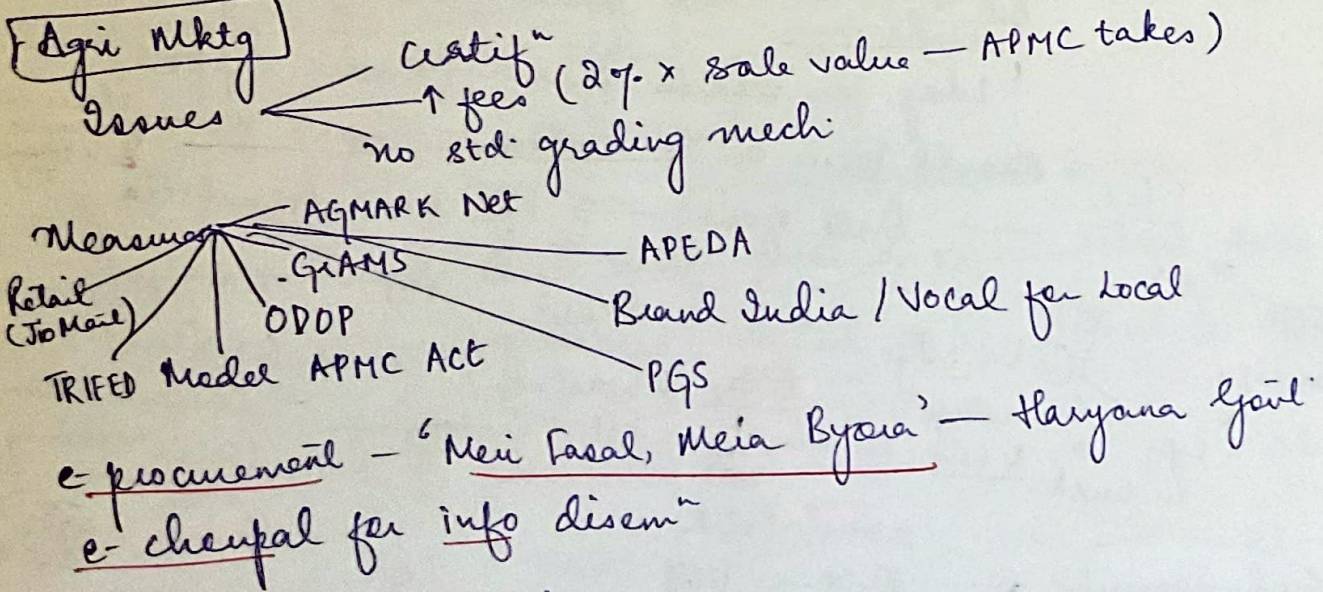 Agri Mktg
Issues
Certifⁿ
↑ fees (2% x sale value — APMC takes)
no std. grading mech.
Measures
AGMARK Net
APEDA
GrAMS
Brand India / Vocal for Local
Retail
(Jio Mart)
ODOP
PGS
TRIFED
Model APMC Act
e-procurement - 'Meri Fasal, Mera Byora' — Haryana Govt.
e-choupal for info disemⁿ